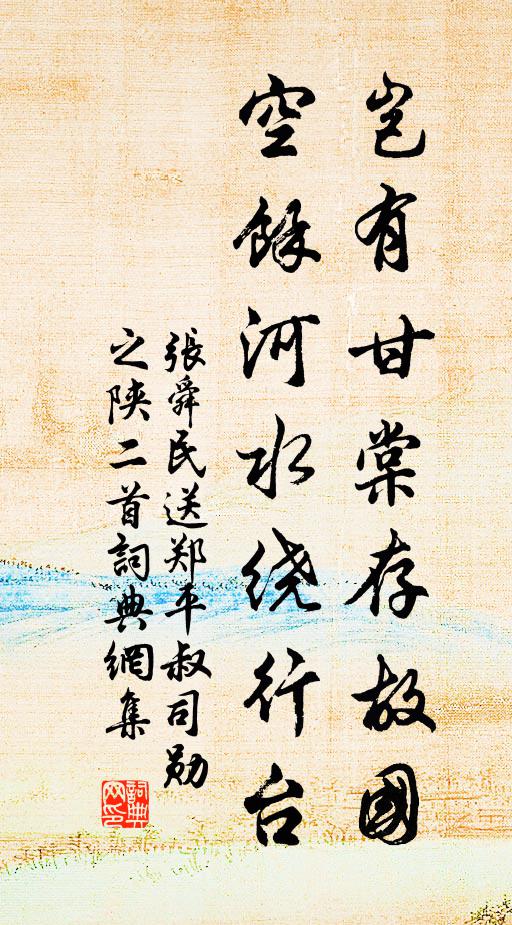 岂有甘棠存故國
空餘河水绕行台
張舜民送郑平叔司勋
之陕二首詞典網集
詞典
网印